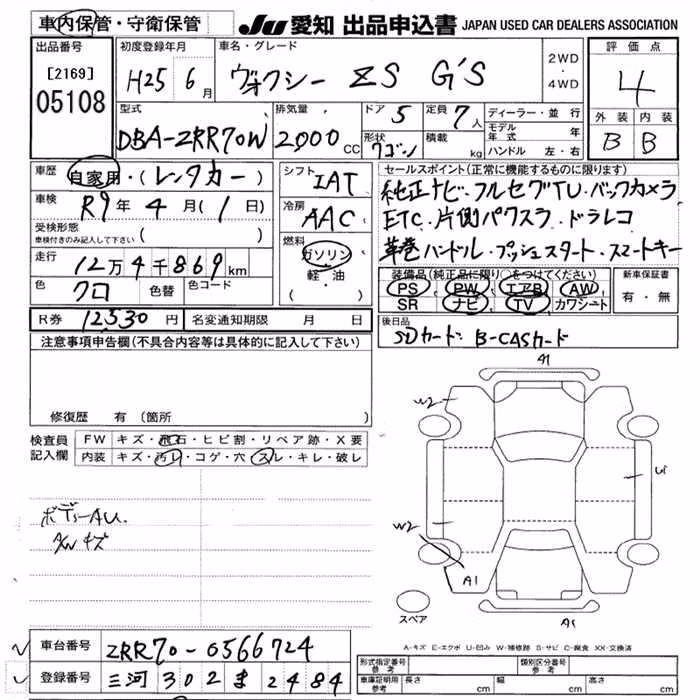 車内保管・守衛保管
JU 愛知 出品申込書 JAPAN USED CAR DEALERS ASSOCIATION
出品番号
[2169]
05108
初度登録年月
H25 6月
車名・グレード
ヴォクシー ZS G'S
2WD
・
4WD
評価点
4
外装 内装
B B
型式
DBA-ZRR70W
排気量
2000 CC
ドア 5
形状
ワゴン
定員 7人
積載 kg
ディーラー・並行
モデル年式 年
ハンドル 左・右
車歴 自家用・(レンタカー)
車検 R9年 4月(1日)
受検形態
車検付きのみ記入して下さい ( )
走行
12万4千869km
色 クロ 色替 色コード
シフト IAT
冷房 AAC
燃料
ガソリン
・
軽・油
( )
セールスポイント(正常に機能するものに限ります)
純正ナビ・フルセグTV・バックカメラ
ETC・片側パワスラ・ドラレコ
革巻ハンドル・プッシュスタート・スマートキー
装備品(純正品に限り○をつけてください)
PS・PW・エアB・AW
SR・ナビ・TV・カワシート
新車保証書
有・無
R券 12,530 円 名変通知期限 月 日
後日品
SDカード・B-CASカード
注意事項申告欄(不具合内容等は具体的に記入して下さい)
修復歴 有(箇所 )
検査員記入欄
FW キズ・飛石・ヒビ割・リペア跡・X要
内装 キズ・汚レ・コゲ・穴・スレ・キレ・破レ
ボディーAU.
A/Wキズ
A1
W2
U1
W2
A1
A1
スペア
A-キズ E-エクボ U-凹み W-補修跡 S-サビ C-腐食 XX-交換済
車台番号 ZRR70-0566724
登録番号 三河 302 ま 2484
形式指定番号 参考
類別区分番号 参考
車庫証明用 参考 長さ cm 幅 cm 高さ cm